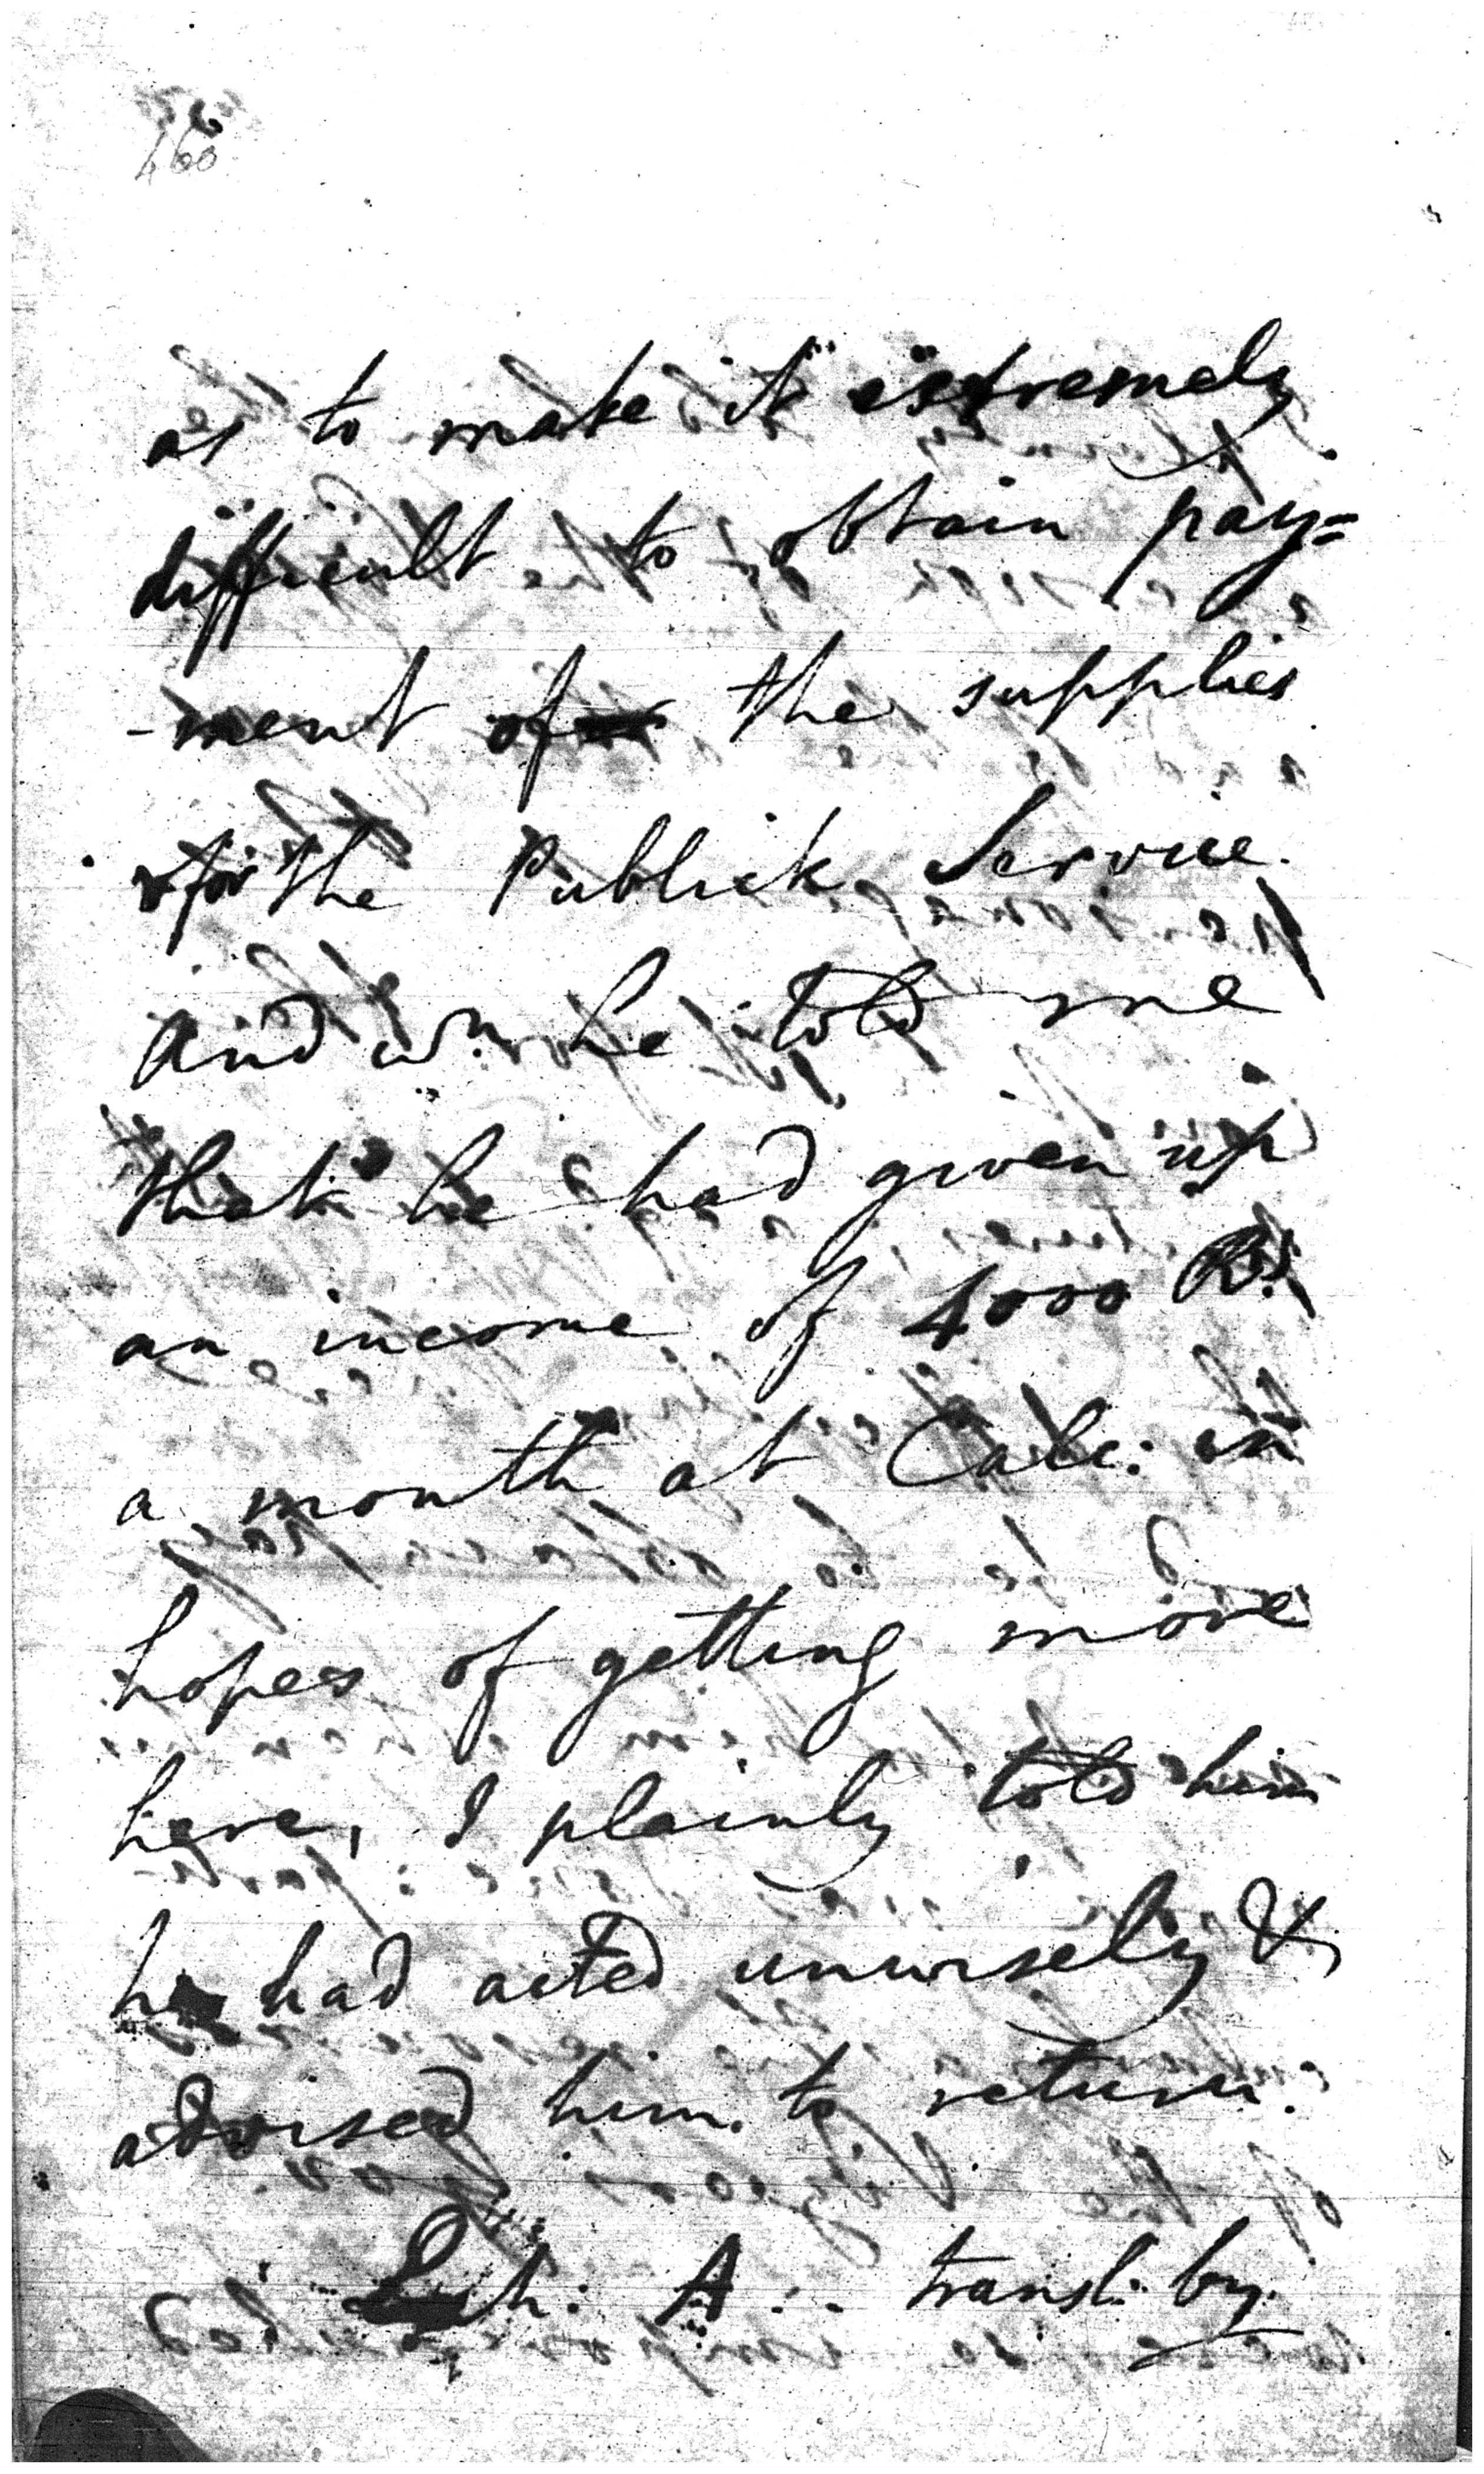 460
as to make it extremely
difficult to obtain pay=
-ment of the supplies
for the Publick Service.
And wn. he told me
that he had given up
an income of 4000 Rs.
a month at Calc: in
hopes of getting more
here, I plainly told him
he had acted unwisely &
advised him to return.
A . . transl. by